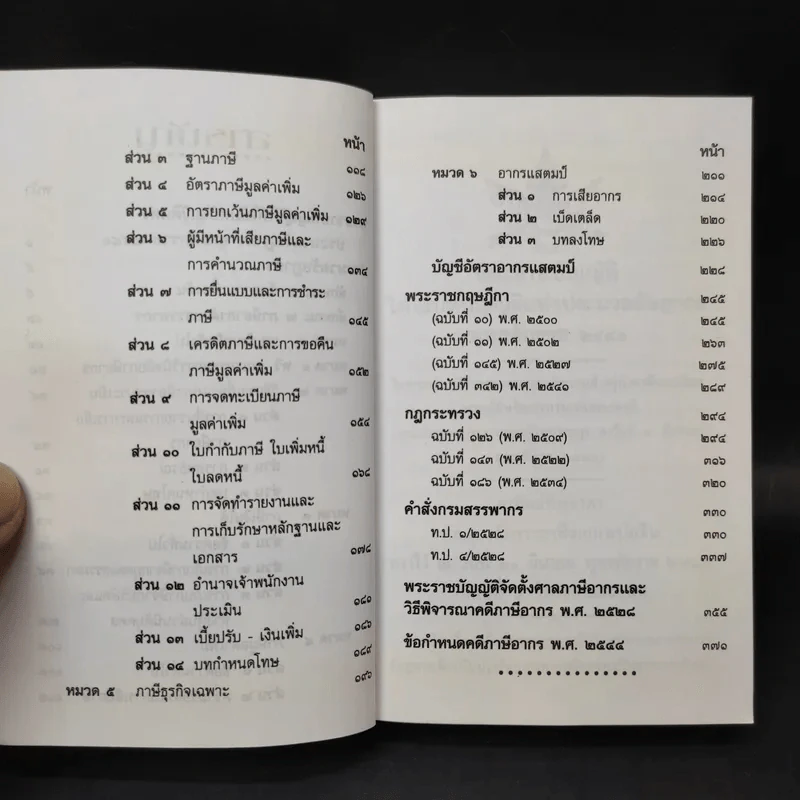 หน้า
ส่วน ๓ ฐานภาษี ๑๑๘
ส่วน ๔ อัตราภาษีมูลค่าเพิ่ม ๑๒๖
ส่วน ๕ การยกเว้นภาษีมูลค่าเพิ่ม ๑๒๙
ส่วน ๖ ผู้มีหน้าที่เสียภาษีและ
การคำนวณภาษี ๑๓๔
ส่วน ๗ การยื่นแบบและการชำระ
ภาษี ๑๔๕
ส่วน ๘ เครดิตภาษีและการขอคืน
ภาษีมูลค่าเพิ่ม ๑๕๒
ส่วน ๙ การจดทะเบียนภาษี
มูลค่าเพิ่ม ๑๕๔
ส่วน ๑๐ ใบกำกับภาษี ใบเพิ่มหนี้
ใบลดหนี้ ๑๖๘
ส่วน ๑๑ การจัดทำรายงานและ
การเก็บรักษาหลักฐานและ
เอกสาร ๑๗๘
ส่วน ๑๒ อำนาจเจ้าพนักงาน
ประเมิน ๑๘๑
ส่วน ๑๓ เบี้ยปรับ - เงินเพิ่ม ๑๘๖
ส่วน ๑๔ บทกำหนดโทษ ๑๘๙
หมวด ๕ ภาษีธุรกิจเฉพาะ ๑๙๖
หน้า
หมวด ๖ อากรแสตมป์ ๒๑๑
ส่วน ๑ การเสียอากร ๒๑๔
ส่วน ๒ เบ็ดเตล็ด ๒๒๐
ส่วน ๓ บทลงโทษ ๒๒๖
บัญชีอัตราอากรแสตมป์ ๒๒๘
พระราชกฤษฎีกา ๒๔๕
(ฉบับที่ ๑๐) พ.ศ. ๒๕๐๐ ๒๔๕
(ฉบับที่ ๑๑) พ.ศ. ๒๕๐๒ ๒๖๓
(ฉบับที่ ๑๔๕) พ.ศ. ๒๕๒๗ ๒๗๕
(ฉบับที่ ๓๔๒) พ.ศ. ๒๕๔๑ ๒๘๙
กฎกระทรวง ๒๙๔
ฉบับที่ ๑๒๖ (พ.ศ. ๒๕๐๙) ๒๙๔
ฉบับที่ ๑๔๓ (พ.ศ. ๒๕๒๒) ๓๑๖
ฉบับที่ ๑๘๖ (พ.ศ. ๒๕๓๔) ๓๒๐
คำสั่งกรมสรรพากร ๓๓๐
ท.ป. ๑/๒๕๒๘ ๓๓๐
ท.ป. ๔/๒๕๒๘ ๓๓๗
พระราชบัญญัติจัดตั้งศาลภาษีอากรและ
วิธีพิจารณาคดีภาษีอากร พ.ศ. ๒๕๒๘ ๓๕๕
ข้อกำหนดคดีภาษีอากร พ.ศ. ๒๕๔๔ ๓๗๑